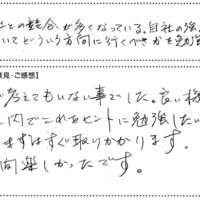 社との競合が多くなっている。自社の強
いてどういう方向に行くべきかを勉強
意見・ご感想】
考えてもいない事でした。良い機
内でこれをヒントに勉強したい
まずはすぐ取りかかります。
間楽しかったです。